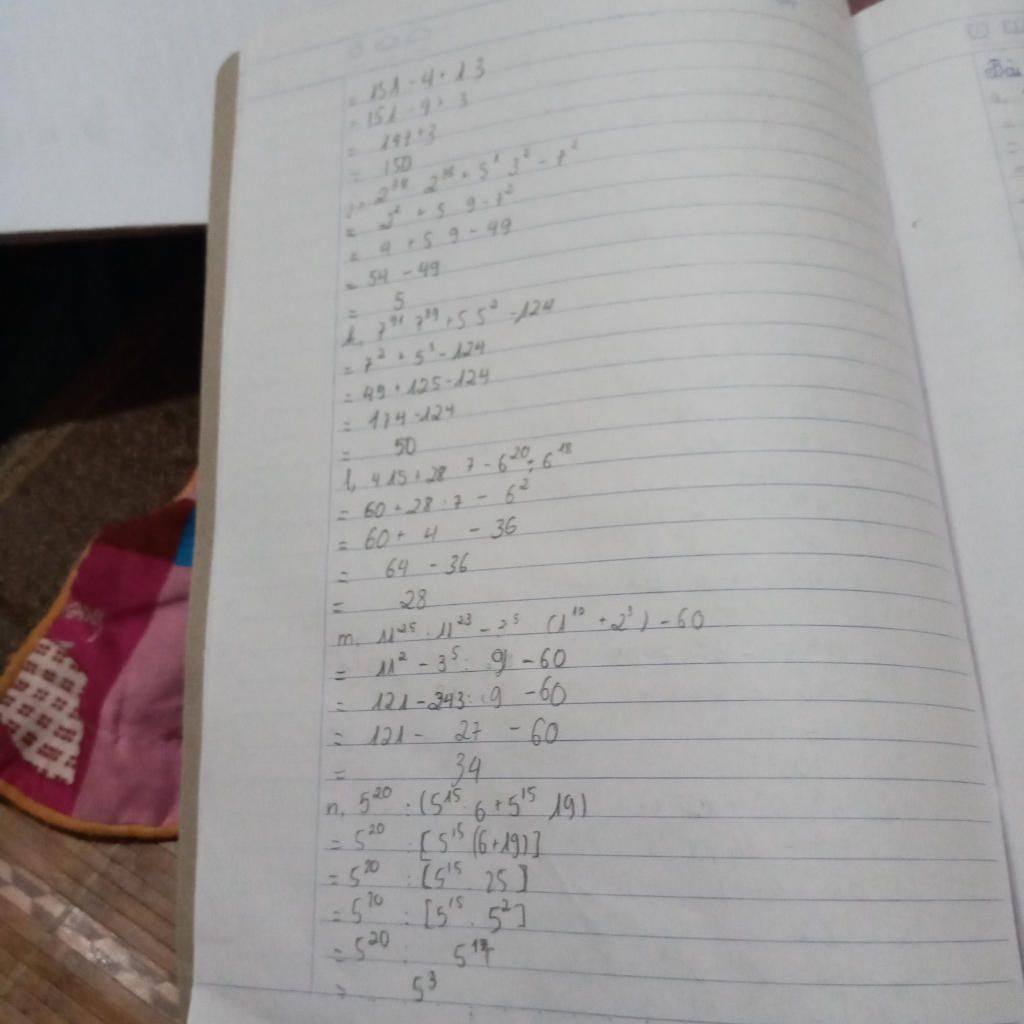 = 151 - 4 + 13
= 151 - 4 + 3
= 147 + 3
= 150
= 3² + 5 9 - 7²
= 9 + 5 9 - 49
= 54 - 49
= 5
k, 7⁹¹ 7⁸⁹ + 5 5² - 124
= 7² + 5³ - 124
= 49 + 125 - 124
= 174 - 124
= 50
l, 4 15 + 28 7 - 6²⁰ : 6¹⁸
= 60 + 28 : 7 - 6²
= 60 + 4 - 36
= 64 - 36
= 28
m, 11²⁵ : 11²³ - 3⁵ (1¹⁰ + 2³) - 60
= 11² - 3⁵ : 9 - 60
= 121 - 243 : 9 - 60
= 121 - 27 - 60
= 34
n, 5²⁰ : (5¹⁵ 6 + 5¹⁵ 19)
= 5²⁰ : [5¹⁵ (6+19)]
= 5²⁰ : [5¹⁵ . 25]
= 5²⁰ : [5¹⁵ . 5²]
= 5²⁰ : 5¹⁷
= 5³
Bài